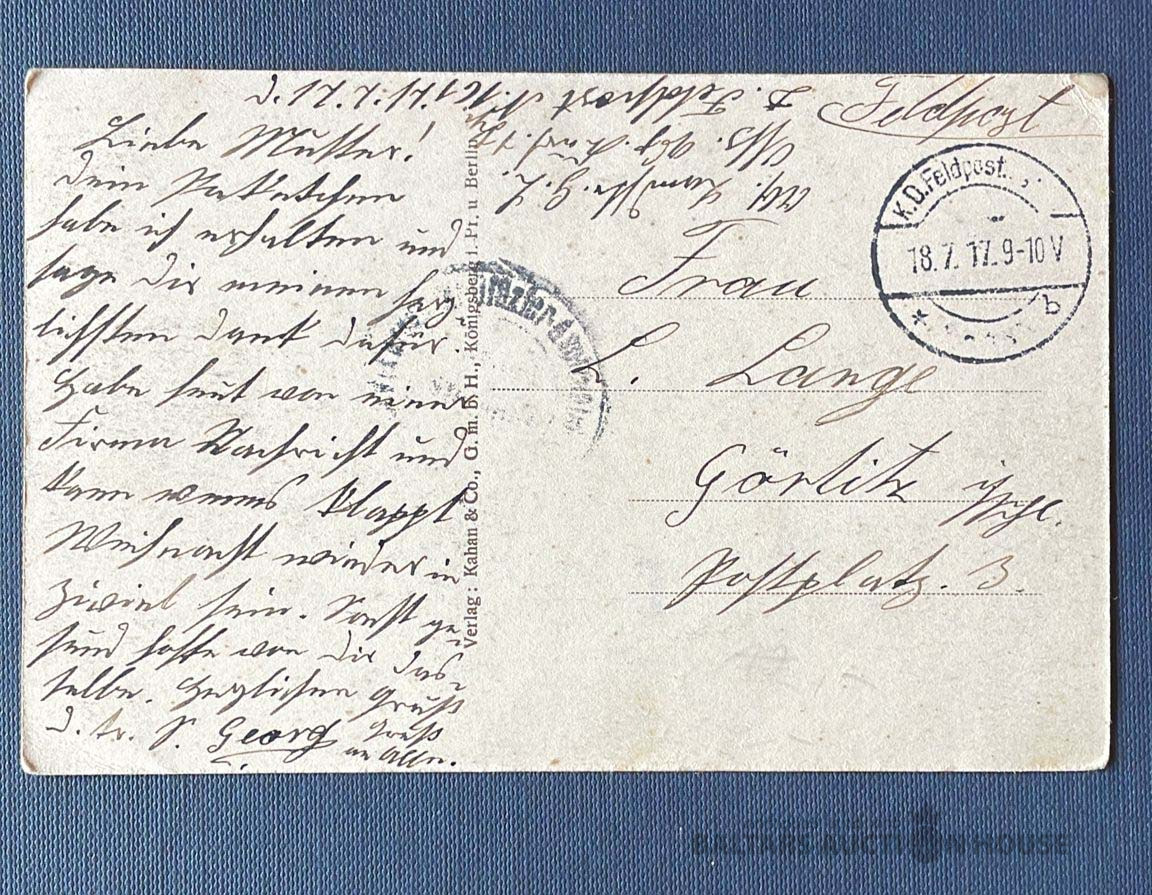 d. 17.7.17.
Liebe Mutter!
Dein Paketchen
habe ich erhalten und
sage Dir meinen herz
lichsten Dank dafür.
Habe heut von meiner
Firma Nachricht und
kann wenns klappt
Weihnacht wieder in
Zivil sein. Sonst ge-
sund hoffe von Dir das-
selbe. Herzlichen Gruß
d. tr. S. Georg Gruß
an alle.
Verlag: Kahan & Co., G. m. b. H., Königsberg i. Pr. u. Berlin
Feldpost
D. Feldpost
Abs.
K.D. Feldpost.
18.7.17.9-10V
* b
Frau
L. Lange
Görlitz i/Schl.
Postplatz. 3.
BALTARS AUCTION HOUSE